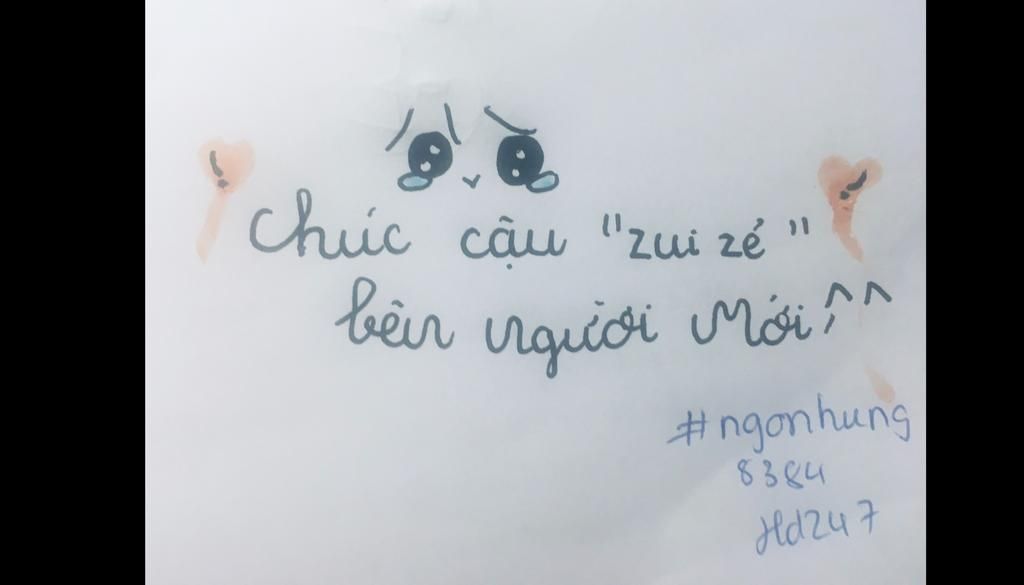 Chúc cậu "zui zẻ"
bên người mới ^^
#ngonhung
8384
Hd247